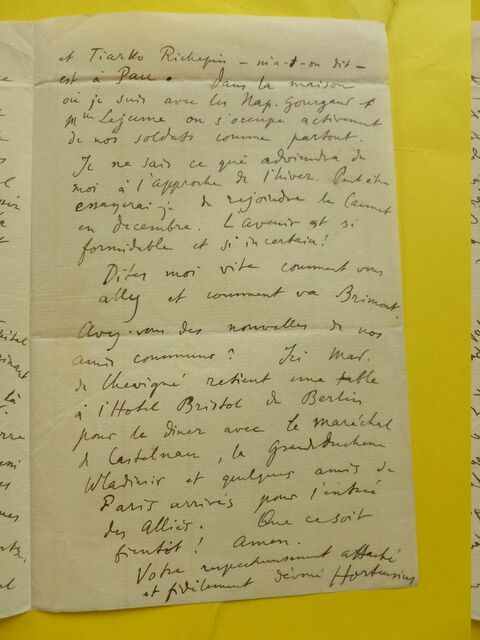 et Tiarko Richepin – m'a-t-on dit –
est à Pau. Dans la maison
où je suis avec les Nap. Gourgaud et
Mme Lejeune on s'occupe activement
de nos soldats comme partout.
Je ne sais ce qu'il adviendra de
moi à l'approche de l'hiver. Peut être
essayerai-je de rejoindre le Cannet
en decembre. L'avenir est si
formidable et si incertain!
Dites moi vite comment vous
allez et comment va Brimont.
Avez-vous des nouvelles de nos
amis communs? Ici Mad.
de Chevigné retient une table
à l'Hotel Bristol de Berlin
pour le diner avec le maréchal
de Castelnau, la Grandduchesse
Wladimir et quelques amis de
Paris arrivés pour l'entrée
des Alliés. Que ce soit
bientôt! Amen.
Votre respectueusement attaché
et fidèlement dévoué Hortensius